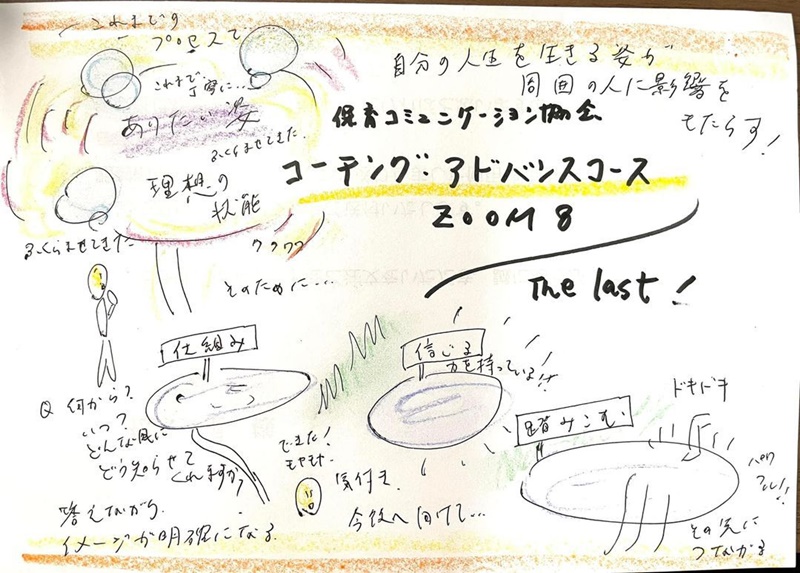 これまでの
プロセスで…
これまで、
丁寧に…
ありたい姿
ふくらませてきた…
理想の
状態
ふくらませてきた
ワクワク
自分の人生を生きる姿が
周囲の人に影響を
もたらす!
保育コミュニケーション協会
コーチング:アドバンスコース
ZOOM 8
The last!
そのために…
仕組み
信じる
力を持っている!!
踏みこむ
ドキドキ
パワフル!!
その先に
つながる
Q 何から?
いつ?
どんな風に
どう知らせて
くれますか?
答えながら
イメージが明確になる
できた!
モヤモヤ
気付き
今後へ向けて…